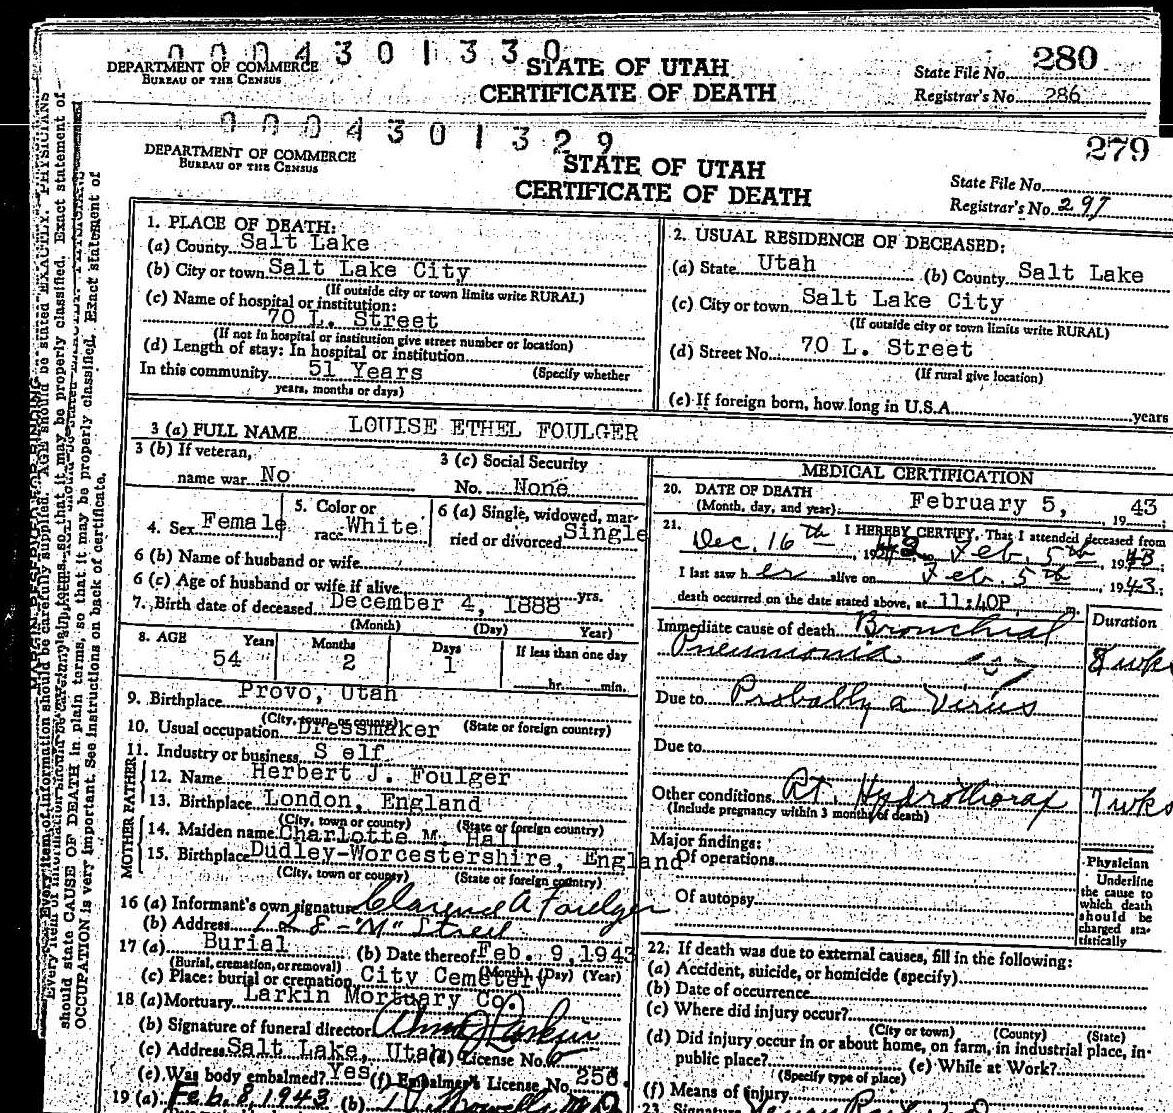 0004301330
DEPARTMENT OF COMMERCE
BUREAU OF THE CENSUS
STATE OF UTAH
CERTIFICATE OF DEATH
State File No. 280
Registrar's No. 286
0004301329
DEPARTMENT OF COMMERCE
BUREAU OF THE CENSUS
STATE OF UTAH
CERTIFICATE OF DEATH
279
State File No.
Registrar's No. 297
1. PLACE OF DEATH:
(a) County Salt Lake
(b) City or town Salt Lake City
(If outside city or town limits write RURAL)
(c) Name of hospital or institution:
70 L. Street
(If not in hospital or institution give street number or location)
(d) Length of stay: In hospital or institution
In this community 51 Years (Specify whether
years, months or days)
2. USUAL RESIDENCE OF DECEASED:
(a) State Utah (b) County Salt Lake
(c) City or town Salt Lake City
(If outside city or town limits write RURAL)
(d) Street No. 70 L. Street
(If rural give location)
(e) If foreign born, how long in U.S.A. years
3 (a) FULL NAME LOUISE ETHEL FOULGER
3 (b) If veteran,
name war No
3 (c) Social Security
No. None
4. Sex Female
5. Color or
race White
6 (a) Single, widowed, mar-
ried or divorced Single
6 (b) Name of husband or wife
6 (c) Age of husband or wife if alive yrs.
7. Birth date of deceased December 4, 1888
(Month) (Day) Year)
8. AGE Years Months Days If less than one day
54 2 1 hr. min.
9. Birthplace Provo, Utah
(City, town or county) (State or foreign country)
10. Usual occupation Dressmaker
11. Industry or business S elf
FATHER
12. Name Herbert J. Foulger
13. Birthplace London, England
(City, town or county) (State or foreign country)
MOTHER
14. Maiden name Charlotte M. Hall
15. Birthplace Dudley-Worcestershire, England
(City, town or county) (State or foreign country)
16 (a) Informant's own signature Clarence A Foulger
(b) Address 128 "M" Street
17 (a) Burial (b) Date thereof Feb. 9, 1943
(Burial, cremation, or removal) (Month) (Day) (Year)
(c) Place: burial or cremation City Cemetery
18 (a) Mortuary Larkin Mortuary Co.
(b) Signature of funeral director
(c) Address Salt Lake, Utah (d) License No. 6
(e) Was body embalmed? Yes (f) Embalmer's License No. 256.
19 (a) Feb. 8, 1943 (b)
MEDICAL CERTIFICATION
20. DATE OF DEATH
(Month, day, and year): February 5, 1943
21. I HEREBY CERTIFY, That I attended deceased from
Dec. 16th, 1942 to Feb. 5th 1943;
I last saw her alive on Feb. 5th 1943;
death occurred on the date stated above, at 11:40P m.
Duration
Immediate cause of death Bronchial
Pneumonia 8 wks
Due to Probably a Virus
Due to
Other conditions Rt. Hydrothorax 7 wks
(Include pregnancy within 3 months of death)
Major findings:
Of operations
Of autopsy
Physician
Underline
the cause to
which death
should be
charged sta-
tistically
22. If death was due to external causes, fill in the following:
(a) Accident, suicide, or homicide (specify)
(b) Date of occurrence
(c) Where did injury occur?
(City or town) (County) (State)
(d) Did injury occur in or about home, on farm, in industrial place, in-
public place? (e) While at Work?
(Specify type of place)
(f) Means of injury
23. Signature
should state CAUSE OF DEATH in plain terms, so that it may be properly classified. Exact statement of
OCCUPATION is very important. See instructions on back of certificate.